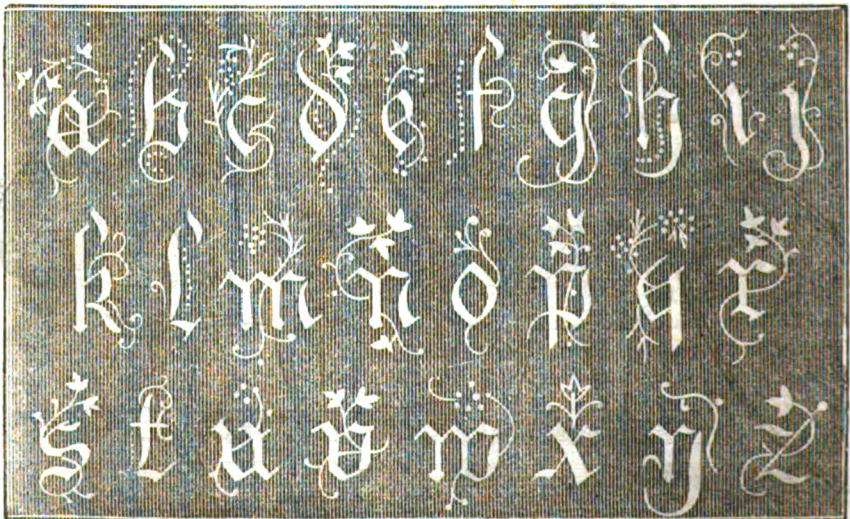 a b c d e f g h i j
k l m n o p q r
s t u v w x y z